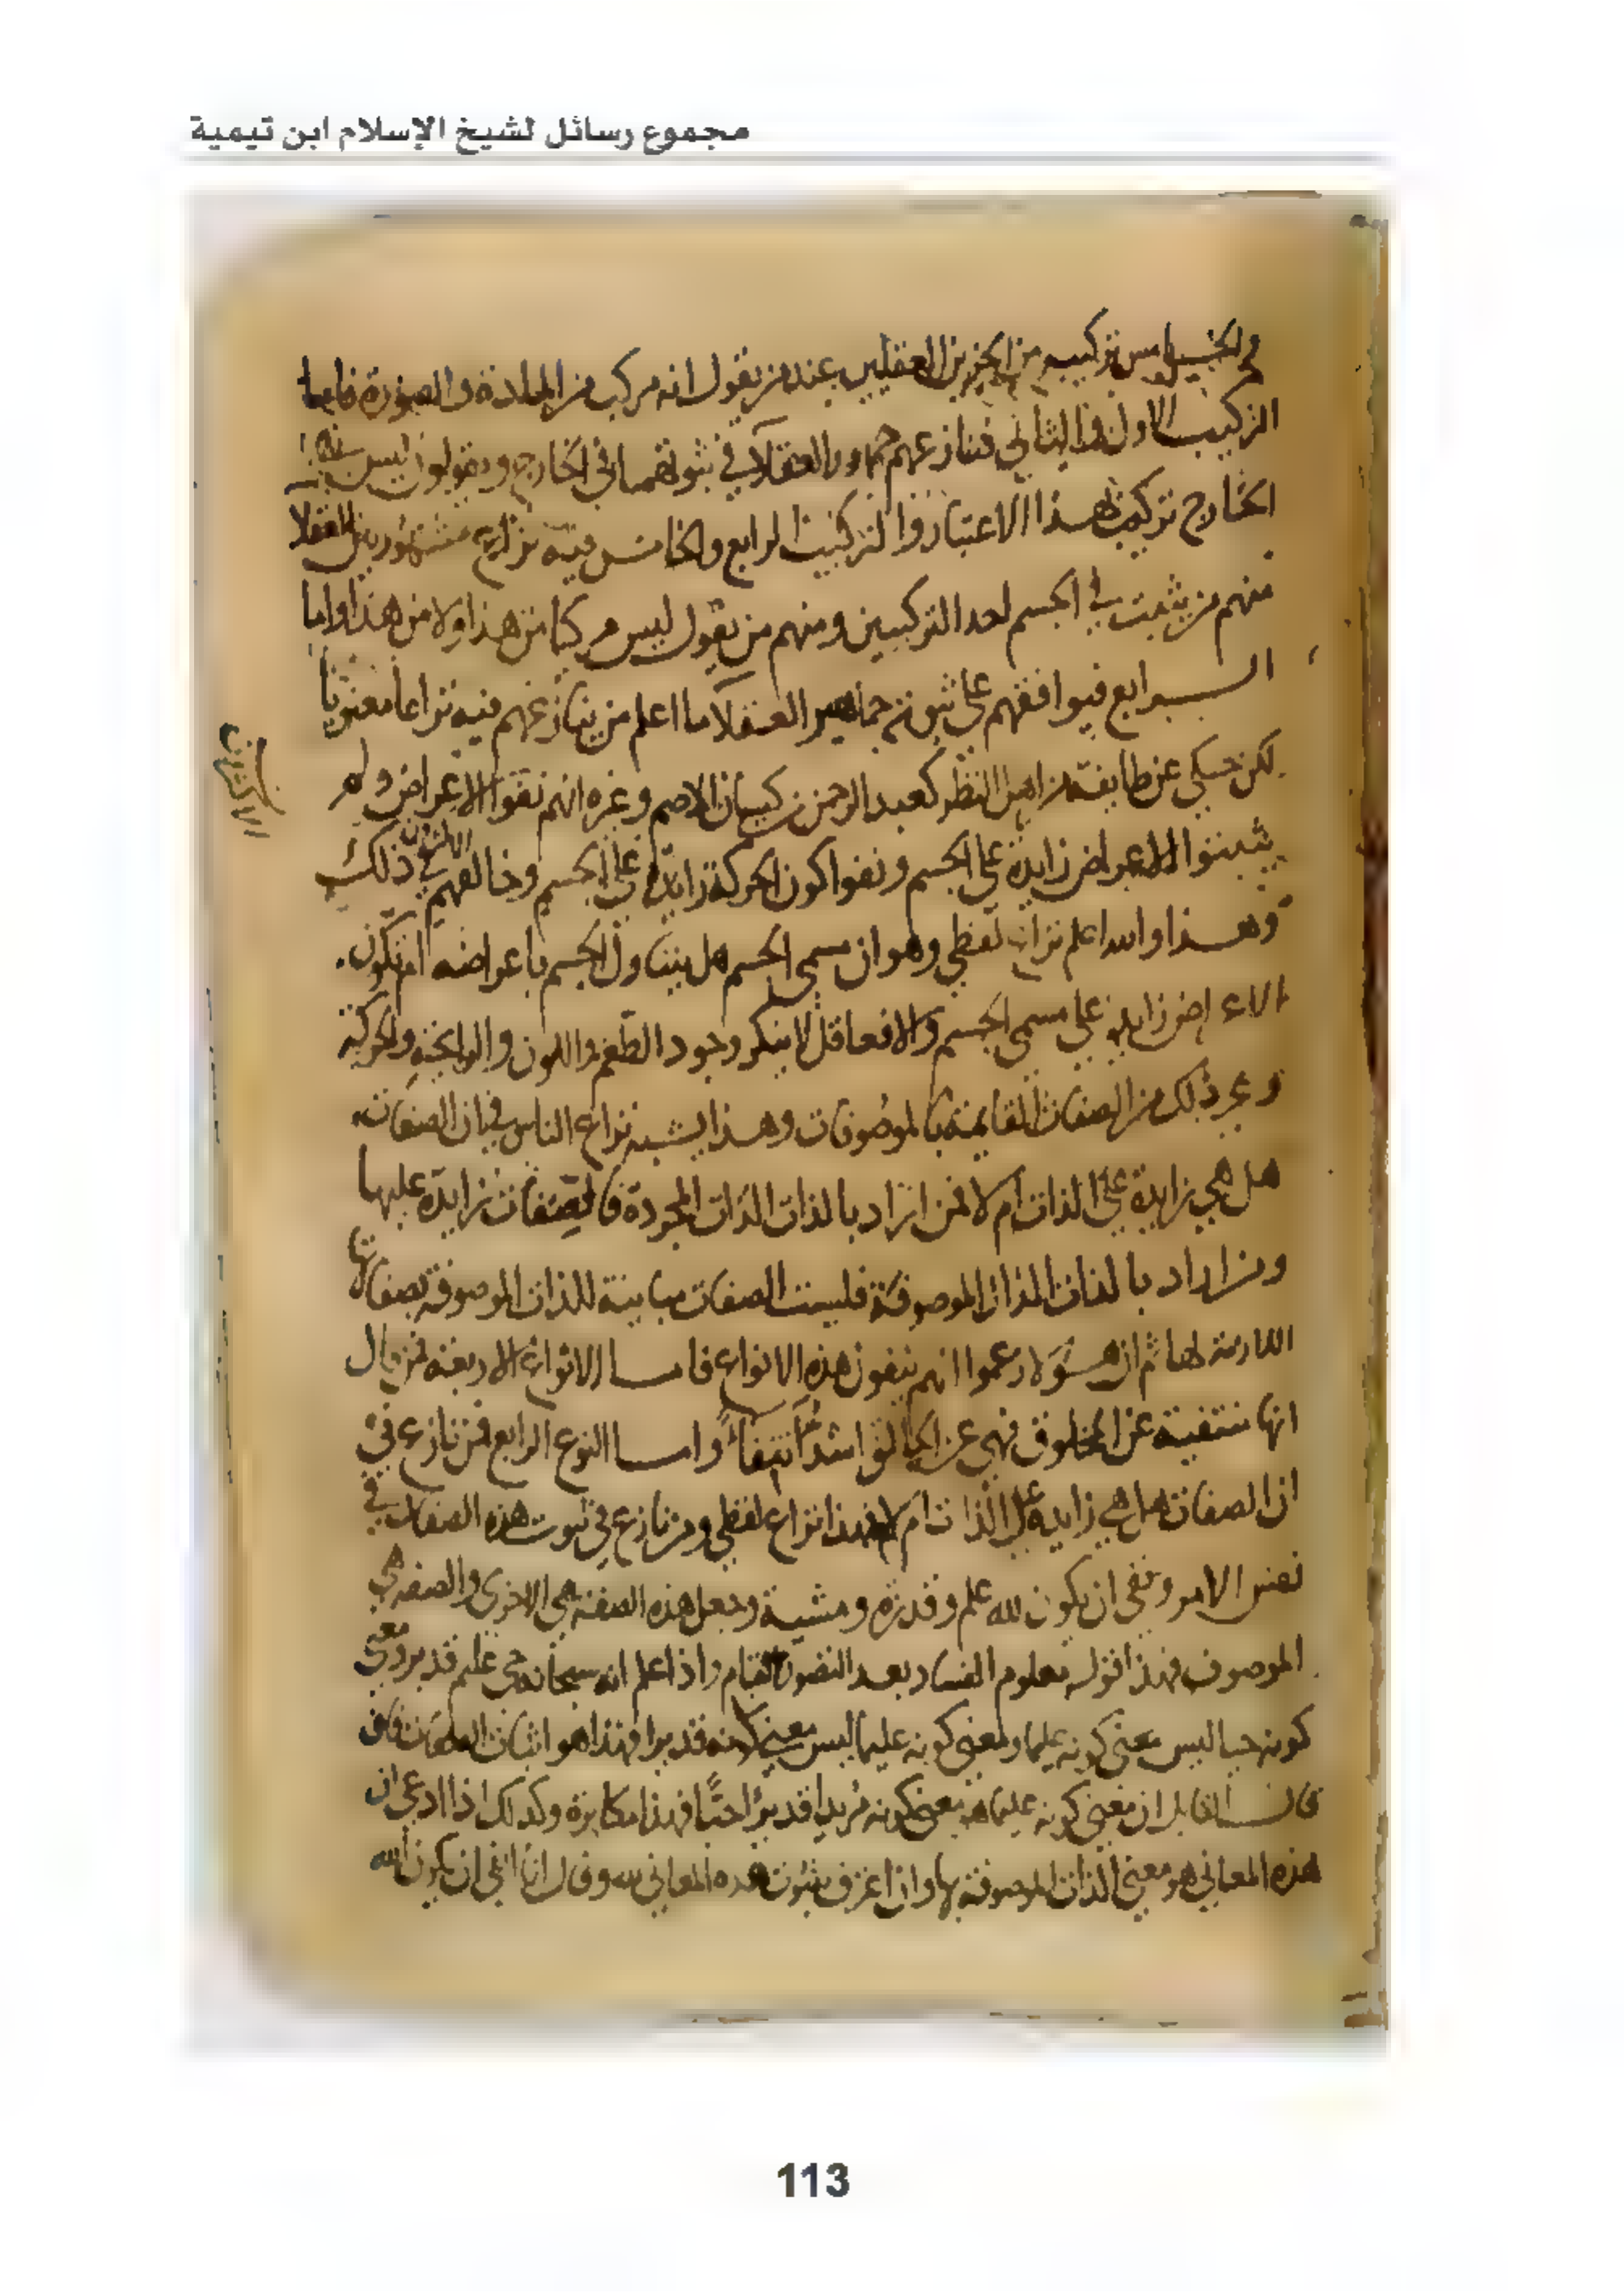 مجموع رسائل لشيخ الإسلام ابن تيمية
الخامس تركيبه من الجزئين العقليين عند من يقول انه مركب من المادة والصورة فاما
التركيب الاول والثاني فنازعهم جمهور العقلاء في ثبوتهما في الخارج ويقولون ليس
الخارج تركيب بهذا الاعتبار والتركيب الرابع والخامس فيه نزاع مشهور بين العقلا
منهم من يثبت في الجسم احد التركيبين ومنهم من يقول ليس مركبا من هذا ولا من هذا واما
الرابع فيوافقهم على ثبوته جماهير العقلا ما اعلم من ينازعهم فيه نزاعا معنويا
لكن حكي عن طايفة من اهل النظر كعبد الرحمن بن كيسان الاصم وغيره انهم نفوا الاعراض ولم
يثبتوا الاعراض زايدة على الجسم ونفوا كون الحركة زايدة على الجسم وخالفهم الاكثرون في ذلك
وهذا والله اعلم نزاع لفظي وهو ان مسمى الجسم هل يتناول الجسم باعراضه ام تكون
الاعراض زايدة على مسمى الجسم والا فعاقل لا ينكر وجود الطعم واللون والرايحة والحركة
وغير ذلك من الصفات القايمة بالموصوفات وهذا يشبه نزاع الناس في ان الصفات
هل هي زايدة على الذات ام لا فمن اراد بالذات الذات المجردة فالصفات زايدة عليها
ومن اراد بالذات الذات الموصوفة فليست الصفات مباينة للذات الموصوفة بصفاتها
اللازمة لها ثم ان هؤلا زعموا انهم ينفون هذه الانواع فاما الانواع الاربعة فمن قال
انها منتفية عن المخلوق فهي عن الخالق اشد انتفاء واما النوع الرابع فمن نازع في
ان الصفات هل هي زايدة على الذات ام لا فهذا نزاع لفظي ومن نازع في ثبوت هذه الصفات في
نفس الامر ونفى ان يكون لله علم وقدرة ومشية وجعل هذه الصفة هي الاخرى والصفة هي
الموصوف فهذا قوله معلوم الفساد بعد التصور التام واذا علم انه سبحانه حي عليم قدير ومعنى
كونه حيا ليس معنى كونه عليما ومعنى كونه عليما ليس معنى كونه قديرا فهذا هو اثبات الصفات فان
قال القايل ان معنى كونه عليما هو معنى كونه مريدا قديرا حيا فهذا مكابرة وكذلك اذا ادعى ان
هذه المعاني هو معنى الذات الموصوفة بها وان اعترف بثبوت هذه المعاني لله وقال انا انفي ان يكون الله
113